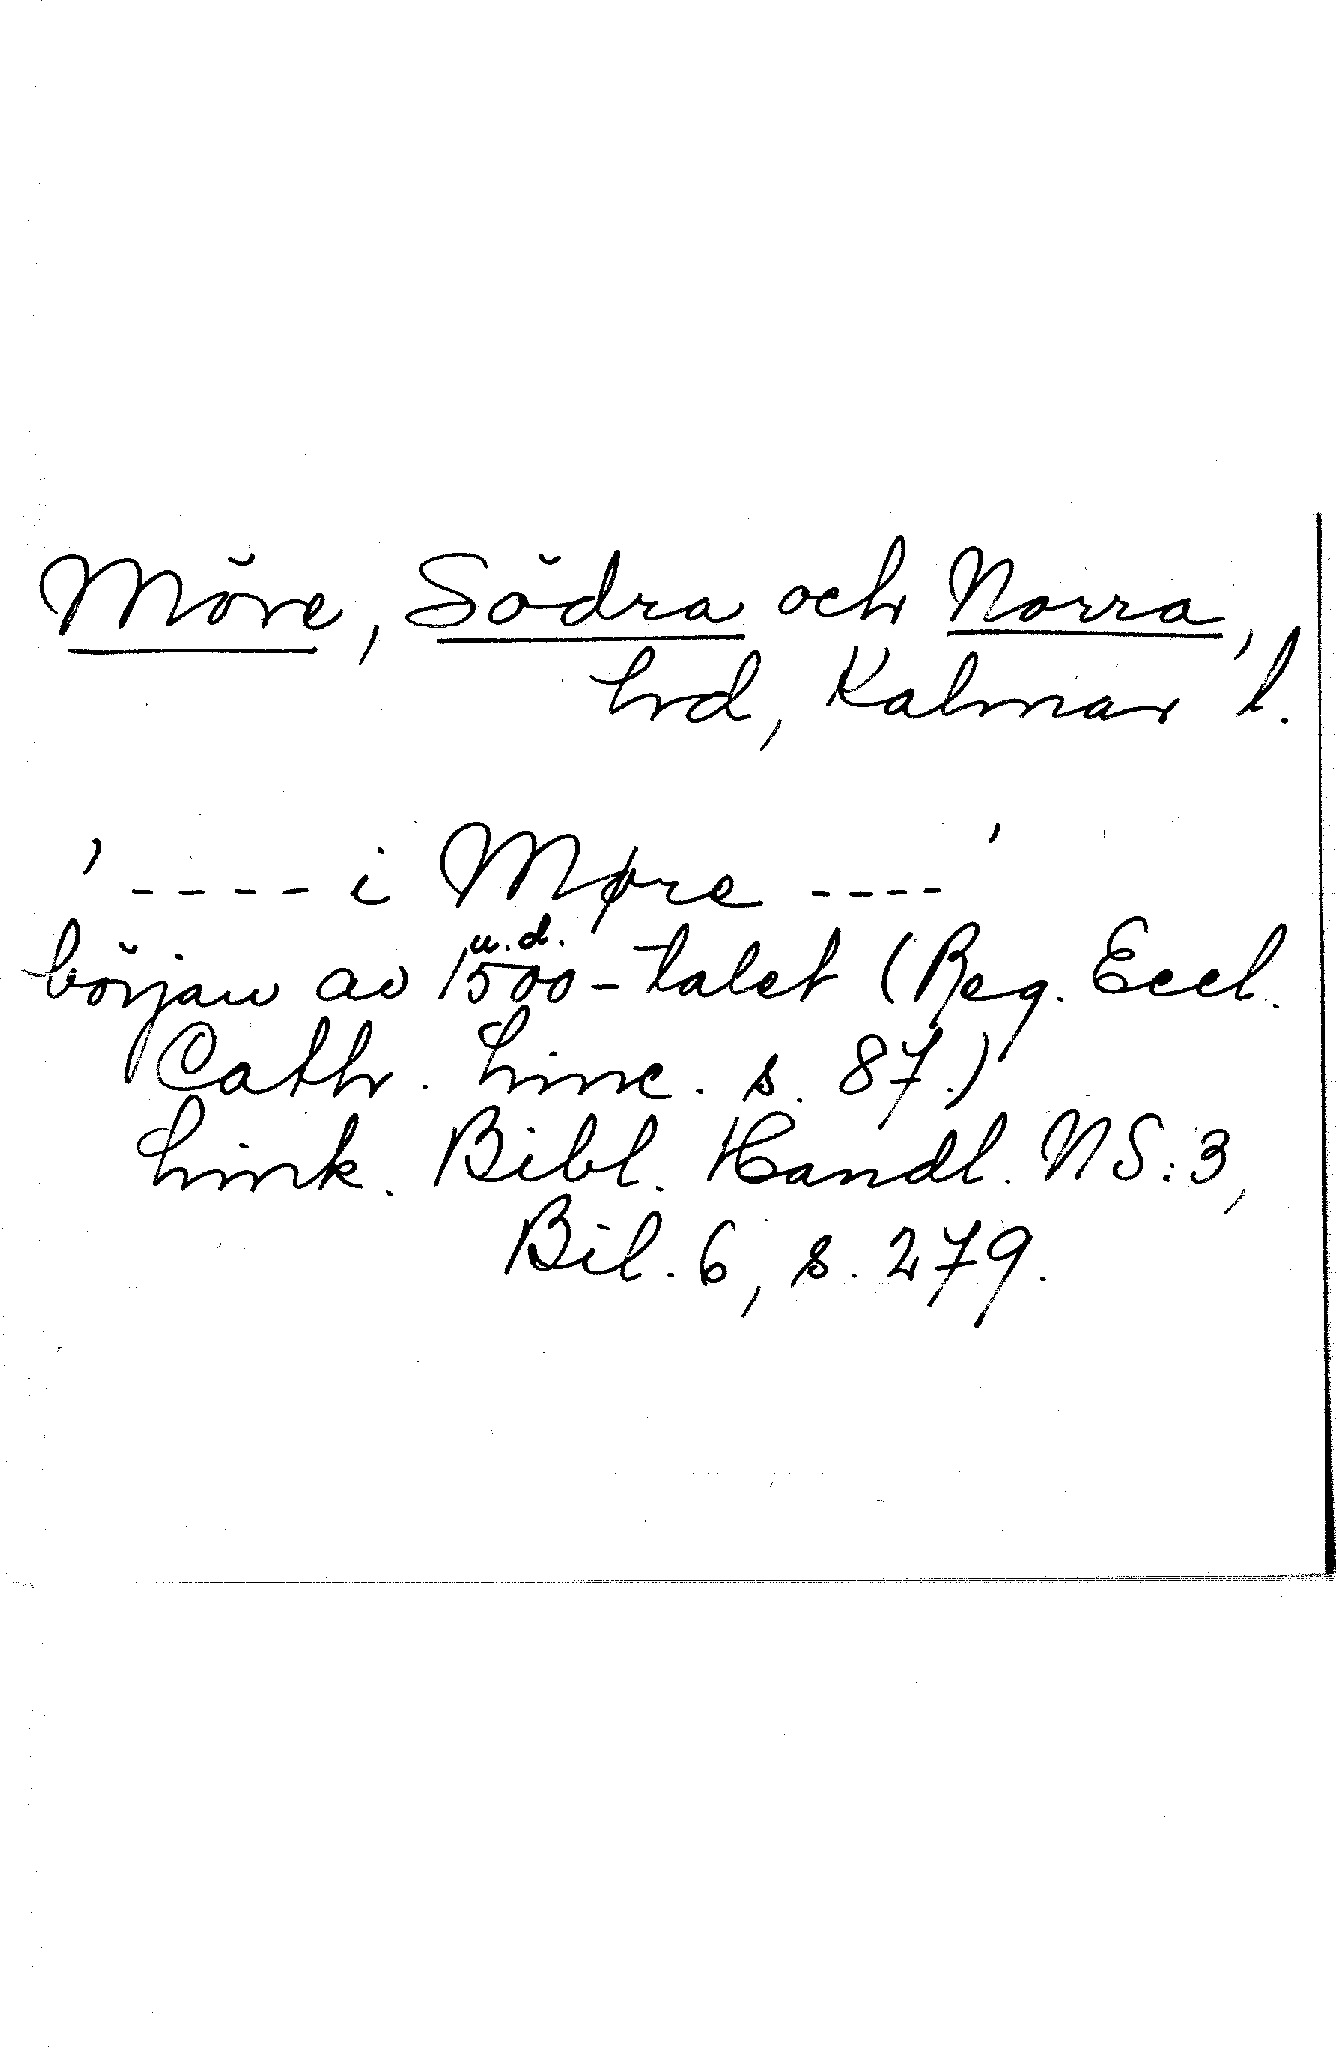 Möre, Södra och Norra,
hrd, Kalmar l.
' ---- i Møre ---- '
u.d.
början av 1500-talet (Reg. Eccl.
Cath. Linc. s. 87.)
Link. Bibl. Handl. NS:3,
Bil. 6, s. 279.